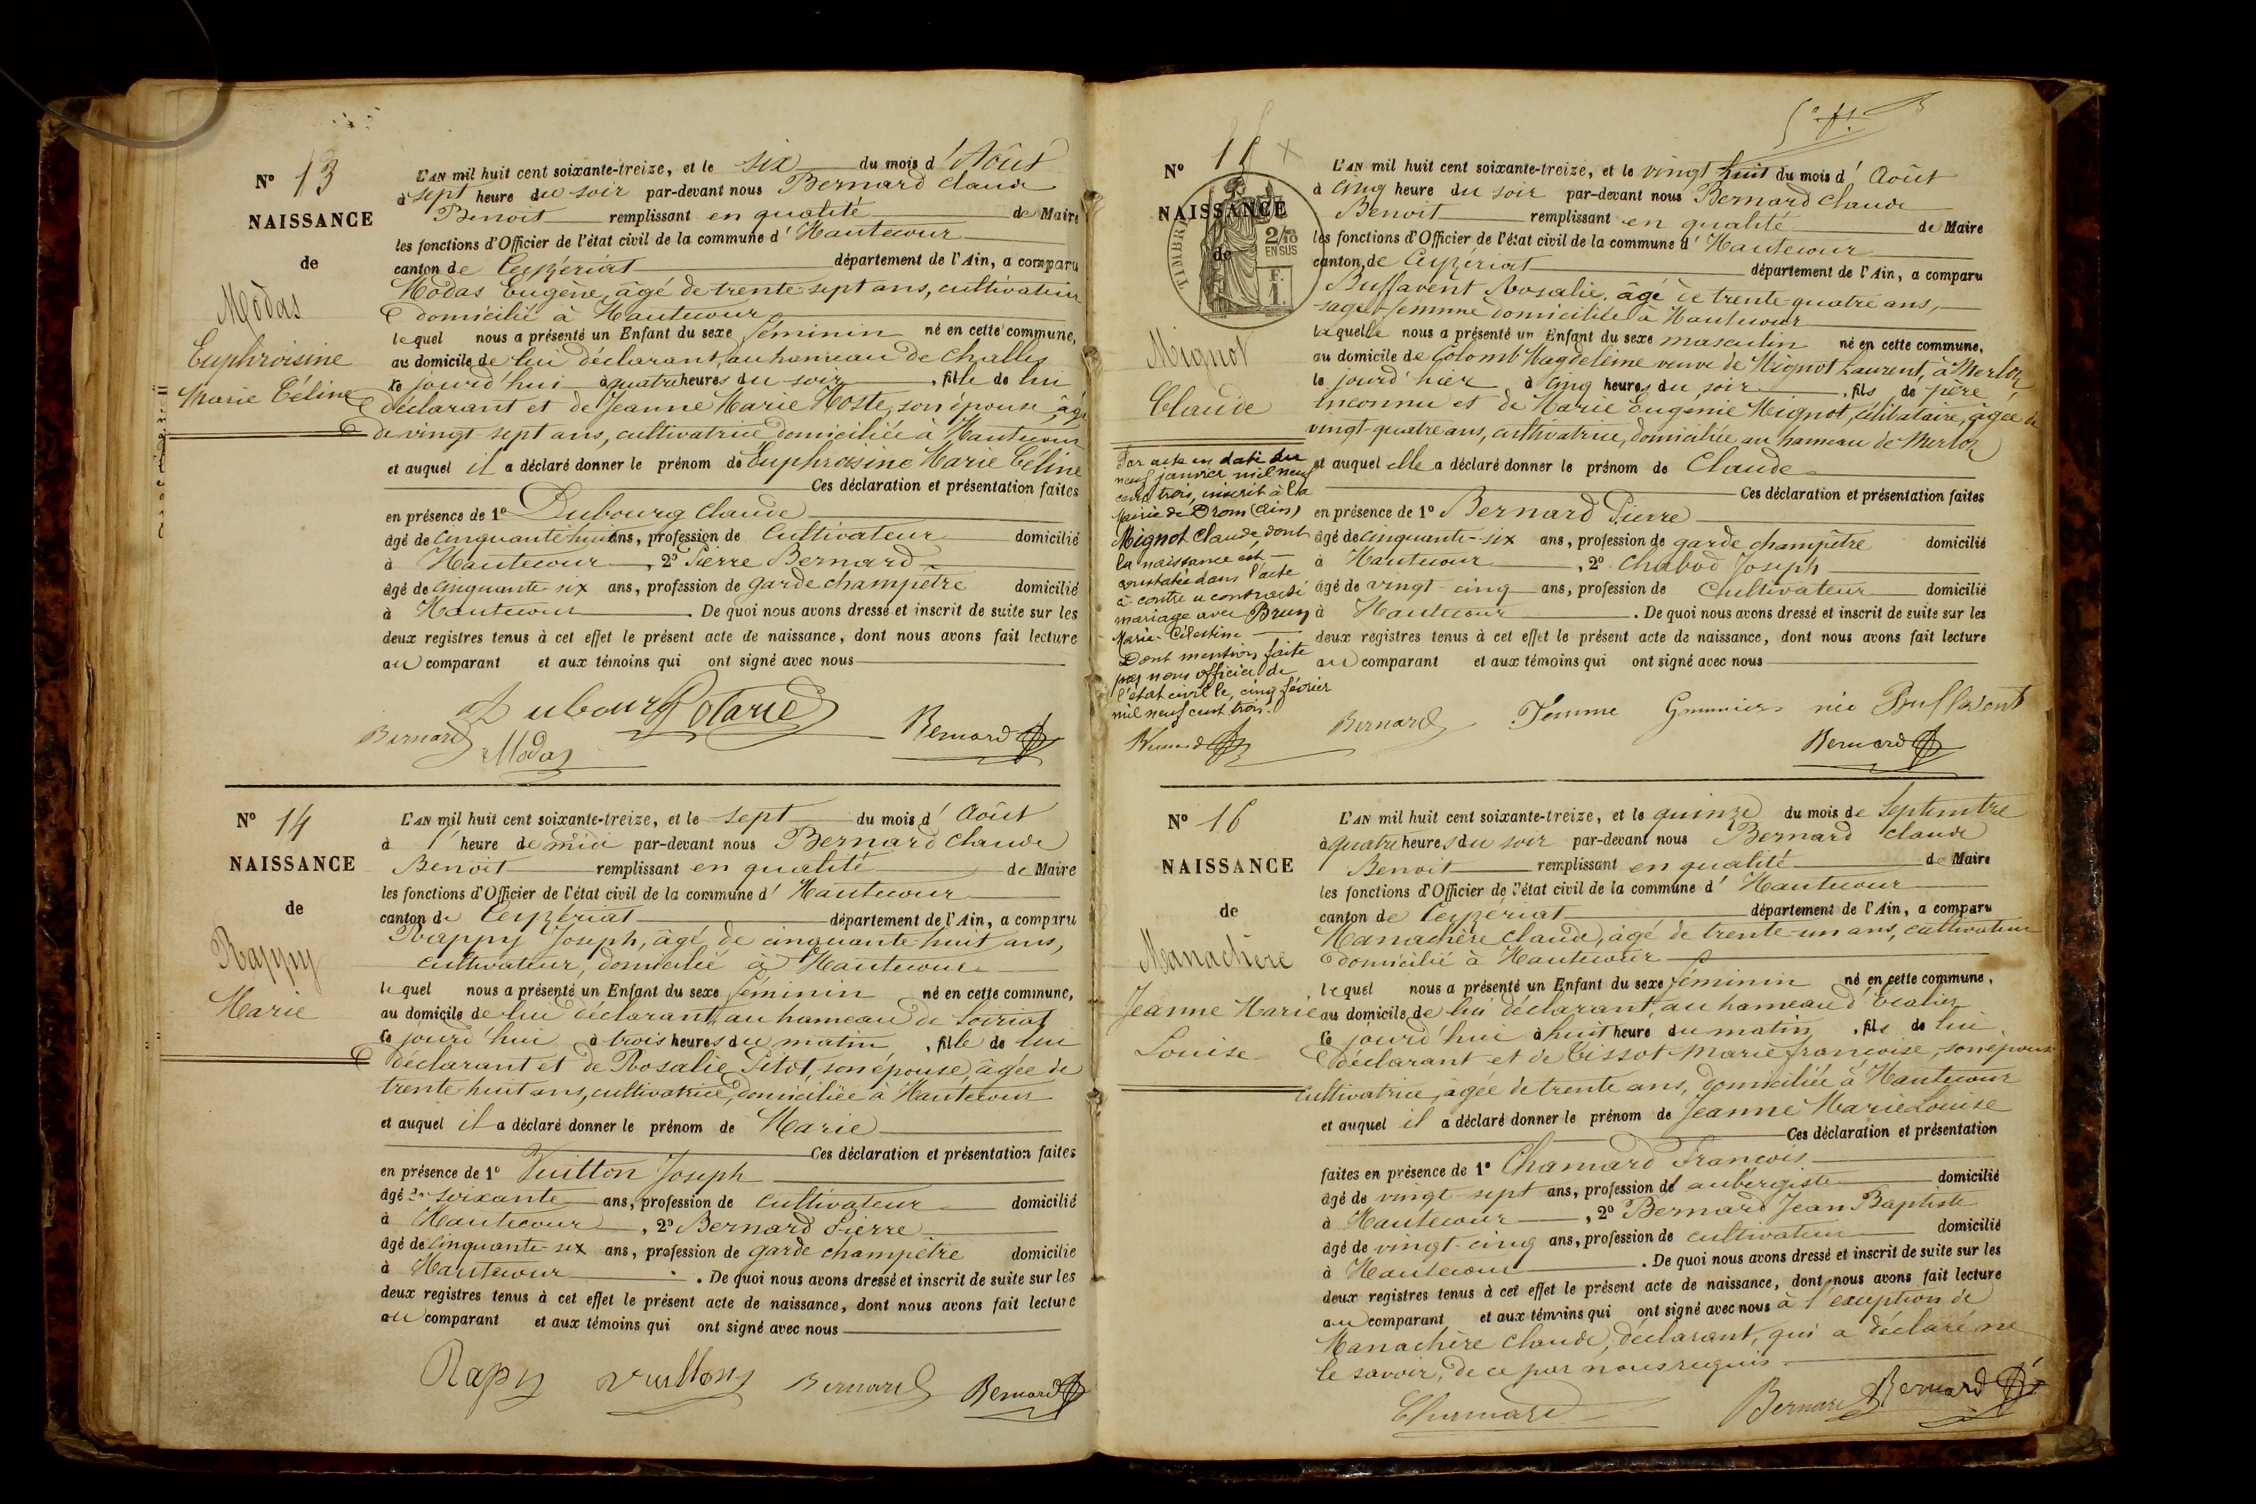 N° 13
NAISSANCE
de
Modas
Euphroisine
Marie Céline
L'AN mil huit cent soixante-treize, et le six du mois d'Août
à sept heure du soir par-devant nous Bernard Claude
Benoit remplissant en qualité de Maire
les fonctions d'Officier de l'état civil de la commune d'Hautecour
canton de Ceyzériat département de l'Ain, a comparu
Modas Eugène, âgé de trente sept ans, cultivateur
domicilié à Hautecour
lequel nous a présenté un Enfant du sexe féminin né en cette commune,
au domicile de lui déclarant, au hameau de Challes
ce jourd'hui à quatre heures du soir, fille de lui
déclarant et de Jeanne Marie Hoste, son épouse, âgée
de vingt sept ans, cultivatrice domiciliée à Hautecour
et auquel il a déclaré donner le prénom de Euphroisine Marie Céline
Ces déclaration et présentation faites
en présence de 1° Dubourg Claude
âgé de cinquante huit ans, profession de Cultivateur domicilié
à Hautecour, 2° Pierre Bernard
âgé de cinquante six ans, profession de garde champêtre domicilié
à Hautecour. De quoi nous avons dressé et inscrit de suite sur les
deux registres tenus à cet effet le présent acte de naissance, dont nous avons fait lecture
au comparant et aux témoins qui ont signé avec nous
Dubourg
Bernard Modas Bernard
N° 14
NAISSANCE
de
Rappy
Marie
L'AN mil huit cent soixante-treize, et le sept du mois d'Août
à 1 heure de midi par-devant nous Bernard Claude
Benoit remplissant en qualité de Maire
les fonctions d'Officier de l'état civil de la commune d'Hautecour
canton de Ceyzériat département de l'Ain, a comparu
Rappy Joseph, âgé de cinquante huit ans,
cultivateur, domicilié à Hautecour
lequel nous a présenté un Enfant du sexe féminin né en cette commune,
au domicile de lui déclarant, au hameau de Soiriat
ce jourd'hui à trois heures du matin, fille de lui
déclarant et de Rosalie Pitot, son épouse, âgée de
trente huit ans, cultivatrice, domiciliée à Hautecour
et auquel il a déclaré donner le prénom de Marie
Ces déclaration et présentation faites
en présence de 1° Vuitton Joseph
âgé de soixante ans, profession de cultivateur domicilié
à Hautecour, 2° Bernard Pierre
âgé de cinquante-six ans, profession de garde champêtre domicilié
à Hautecour. De quoi nous avons dressé et inscrit de suite sur les
deux registres tenus à cet effet le présent acte de naissance, dont nous avons fait lecture
au comparant et aux témoins qui ont signé avec nous
Rapy Vuitton Bernard Bernard
N° 15
NAISSANCE
de
TIMBRE
2/10
EN SUS
F.
1.
Mignot
Claude
Par acte en date du
neuf janvier mil neuf
cent trois, inscrit à la
Mairie de Drom (Ain)
Mignot Claude dont
la naissance est
constatée dans l'acte
à contre a contracté
mariage avec Brun
Marie Célestine
Dont mention faite
par nous officier de
l'état civil le cinq février
mil neuf cent trois.
L'AN mil huit cent soixante-treize, et le vingt huit du mois d'Août
à cinq heure du soir par-devant nous Bernard Claude
Benoit remplissant en qualité de Maire
les fonctions d'Officier de l'état civil de la commune d'Hautecour
canton de Ceyzériat département de l'Ain, a comparu
Buffavent Rosalie, âgé de trente quatre ans,
sage-femme domiciliée à Hautecour
laquelle nous a présenté un Enfant du sexe masculin né en cette commune,
au domicile de Colomb Magdeleine veuve de Mignot Laurent, à Merloz
le jourd'hier à cinq heures du soir, fils de père
inconnu et de Marie Eugénie Mignot, célibataire, âgée de
vingt-quatre ans, cultivatrice, domiciliée au hameau de Merloz
et auquel elle a déclaré donner le prénom de Claude
Ces déclaration et présentation faites
en présence de 1° Bernard Pierre
âgé de cinquante-six ans, profession de garde champêtre domicilié
à Hautecour, 2° Chabod Joseph
âgé de vingt-cinq ans, profession de Cultivateur domicilié
à Hautecour. De quoi nous avons dressé et inscrit de suite sur les
deux registres tenus à cet effet le présent acte de naissance, dont nous avons fait lecture
au comparant et aux témoins qui ont signé avec nous
Bernard Femme née Buffavent
Bernard
N° 16
NAISSANCE
de
Manachère
Jeanne Marie
Louise
L'AN mil huit cent soixante-treize, et le quinze du mois de Septembre
à quatre heures du soir par-devant nous Bernard Claude
Benoit remplissant en qualité de Maire
les fonctions d'Officier de l'état civil de la commune d'Hautecour
canton de Ceyzériat département de l'Ain, a comparu
Manachère Claude, âgé de trente-un ans, cultivateur
domicilié à Hautecour
lequel nous a présenté un Enfant du sexe féminin né en cette commune,
au domicile de lui déclarant, au hameau d'
ce jourd'hui à huit heure du matin, fils de lui
déclarant et de Tissot Marie françoise, son épouse
cultivatrice, âgée de trente ans, domiciliée à Hautecour
et auquel il a déclaré donner le prénom de Jeanne Marie Louise
Ces déclaration et présentation
faites en présence de 1° Chamard François
âgé de vingt-sept ans, profession de aubergiste domicilié
à Hautecour, 2° Bernard Jean Baptiste
âgé de vingt-cinq ans, profession de cultivateur domicilié
à Hautecour. De quoi nous avons dressé et inscrit de suite sur les
deux registres tenus à cet effet le présent acte de naissance, dont nous avons fait lecture
au comparant et aux témoins qui ont signé avec nous à l'exception de
Manachère Claude, déclarant, qui a déclaré ne
le savoir, de ce par nous requis.
Chamard Bernard Bernard